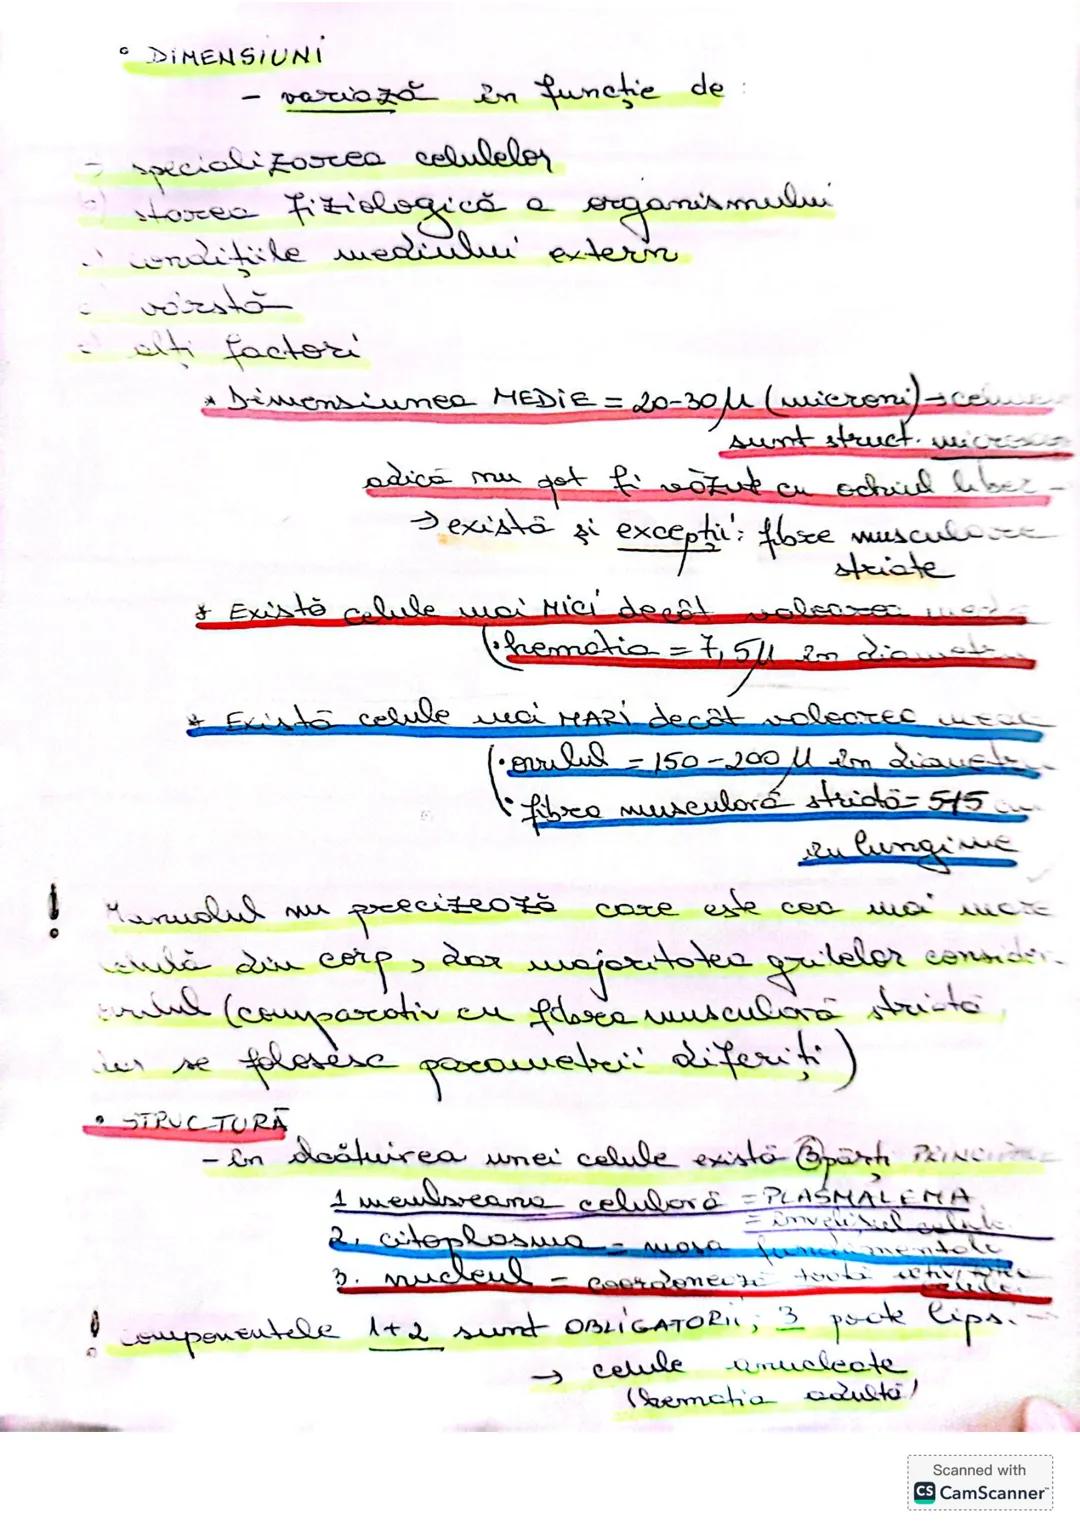 • DIMENSIUNI
- variază în funcție de :
- specializarea celulelor
starea fiziologică a organismului
condițiile mediului extern
vârstă
alți factori
* Dimensiunea MEDIE = 20-30 µ (microni) →
sunt struct.
adică nu pot fi văzut cu ochiul liber -
→ există și excepții: fibre musculare
striate
* Există celule mai MICI decât valoarea
(• hematia = 7,5µ în
* Există celule mai MARI decât valoarea
(• ovulul = 150-200 µ în
• fibra musculară striată = 5/15
în lungime
! Manualul nu precizează care este cea mai mare
din corp, dar majoritatea grilelor
(comparativ cu fibra musculară striată,
se folosesc parametrii diferiți)
• STRUCTURĂ
- în alcătuirea unei celule există 3 părți
1 membrana celulară = PLASMALEMA
=
2. citoplasma - masa fundamentală
3. nucleul - coordonează toată
! componentele 1+2 sunt OBLIGATORII; 3 poate lips.
→ celule anucleate
(hematia adultă)
Scanned with
CS CamScanner